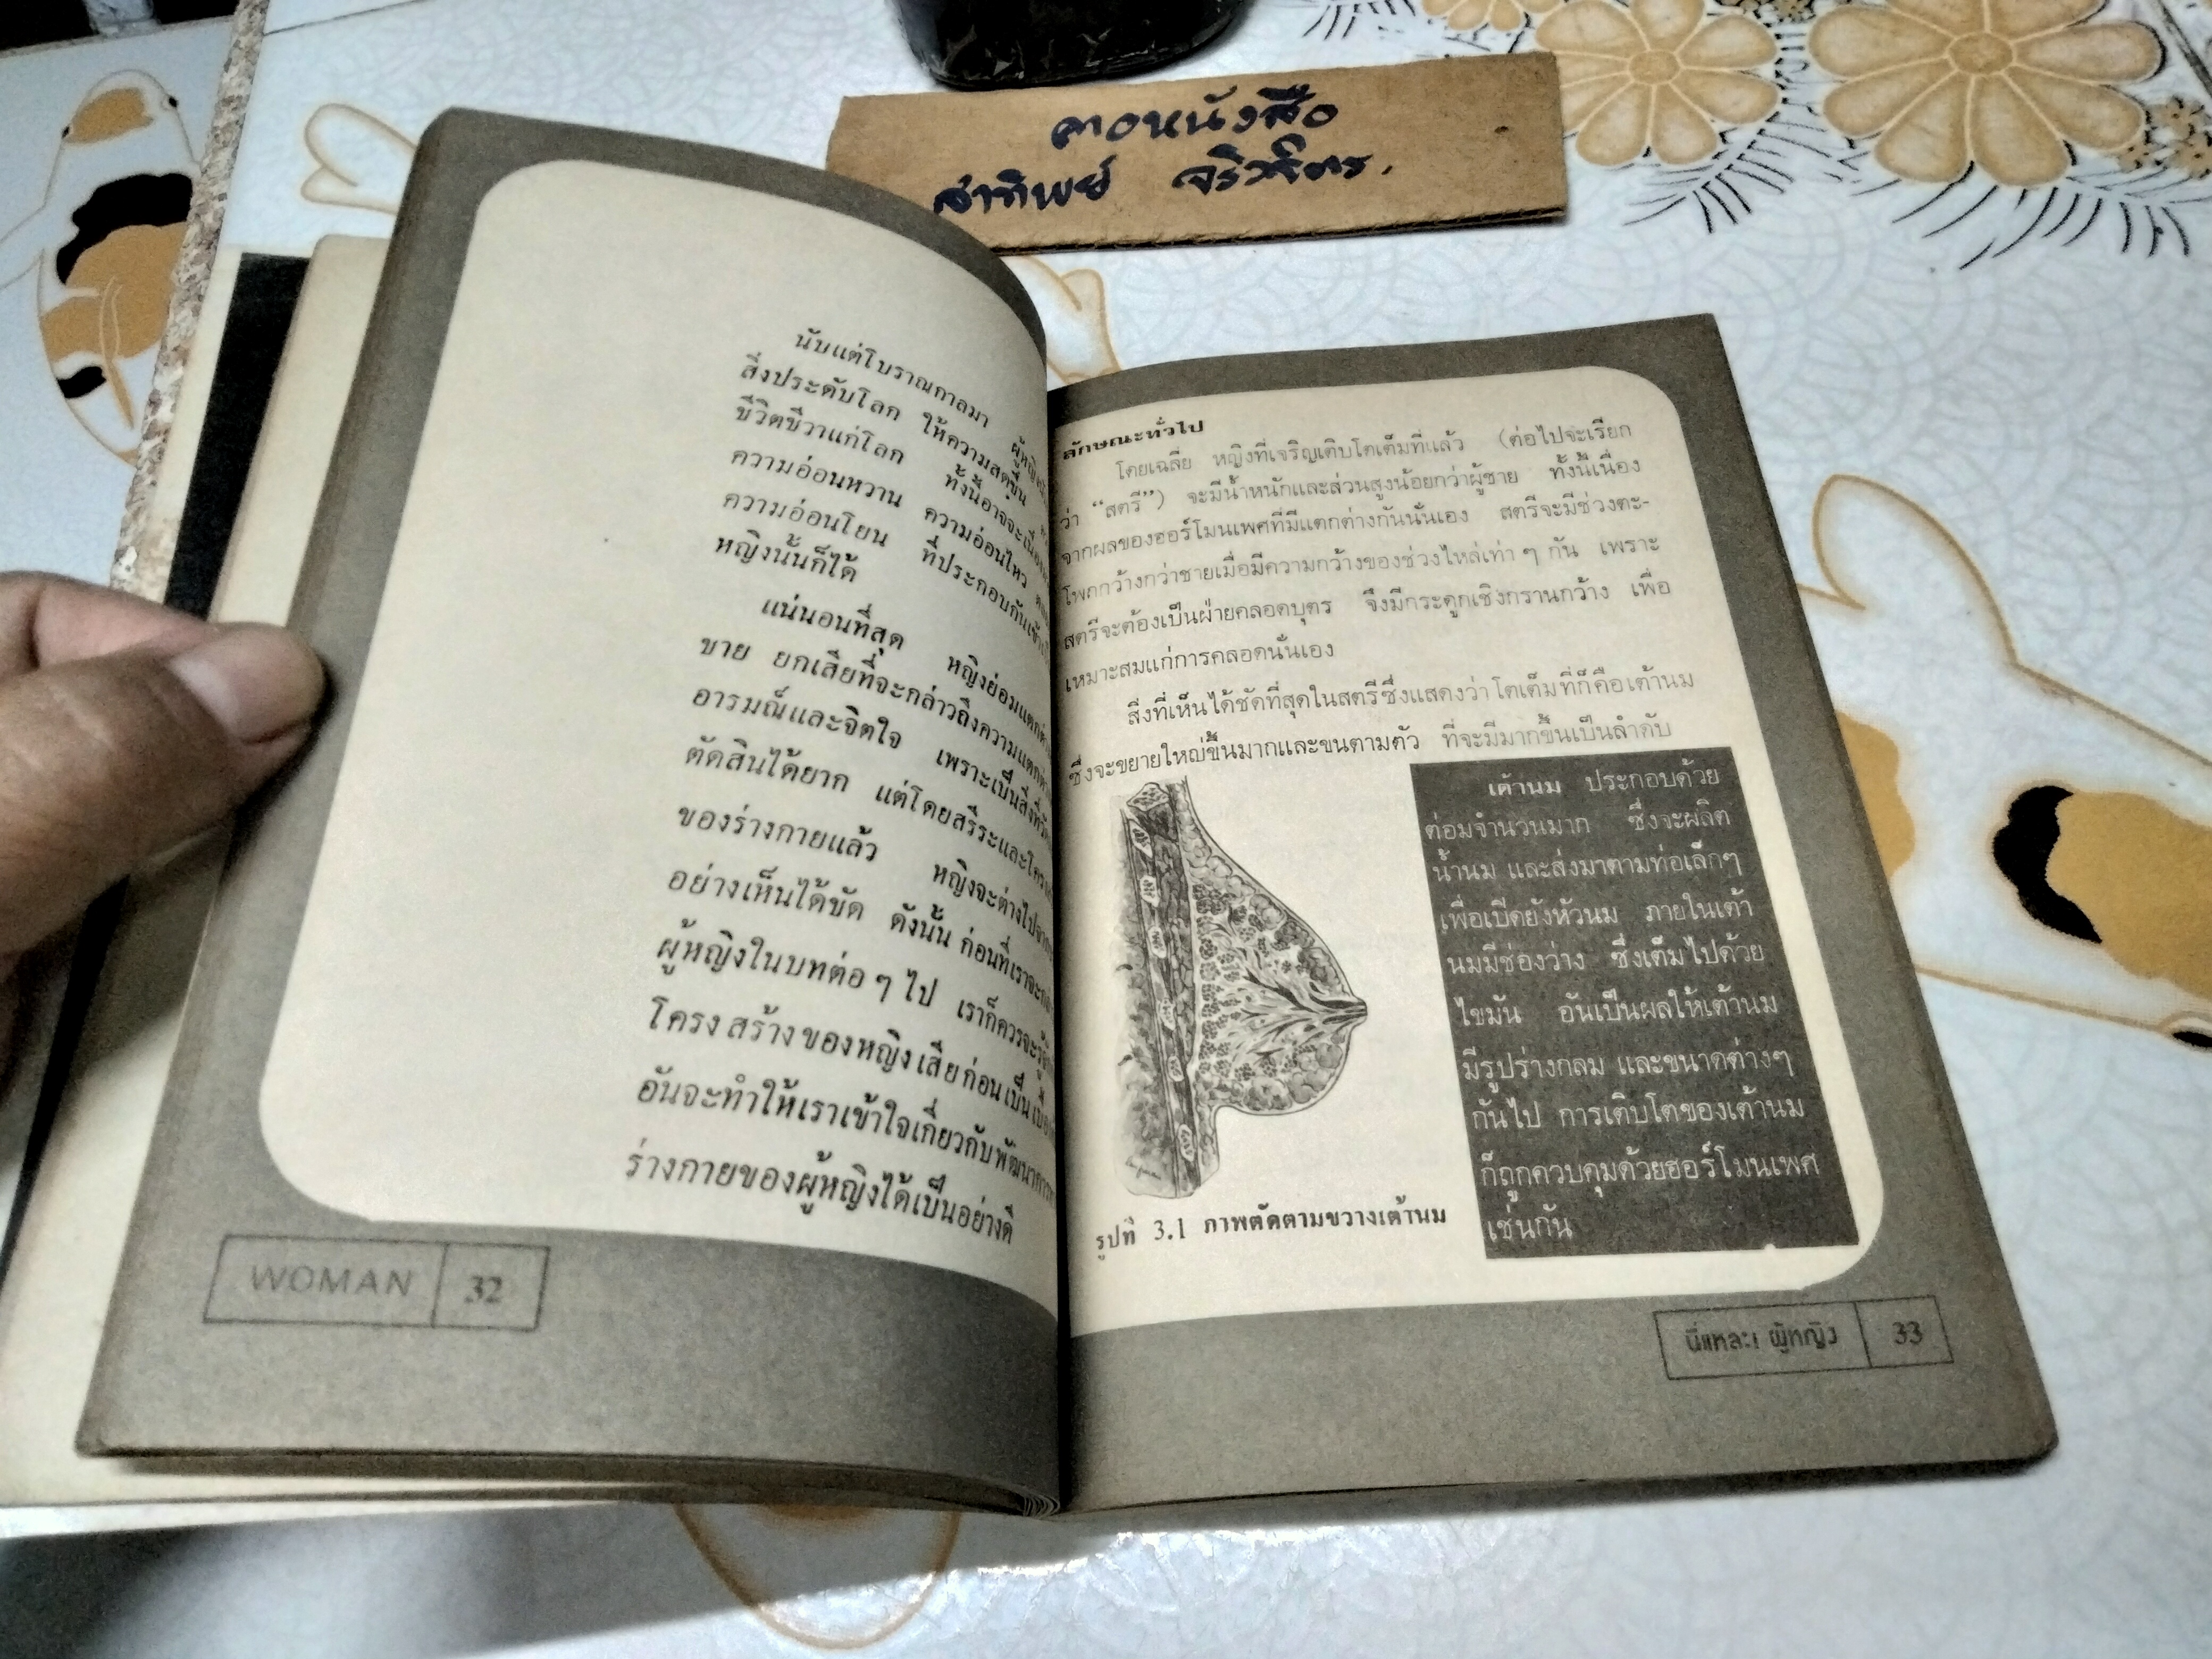 สาทิพย์
นับแต่โบราณกาลมา
สิ่งประดับโลก ให้ความสดชื่น
ชีวิตชีวาแก่โลก ทั้งนี้อาจจะเนื่อง
ความอ่อนหวาน ความอ่อนไหว
ความอ่อนโยน ที่ประกอบกันเข้า
หญิงนั้นก็ได้
แน่นอนที่สุด หญิงย่อมแตกต่าง
ชาย ยกเสียที่จะกล่าวถึงความแตกต่าง
อารมณ์และจิตใจ เพราะเป็นสิ่งที่
ตัดสินได้ยาก แต่โดยสรีระและโครง
ของร่างกายแล้ว หญิงจะต่างไป
อย่างเห็นได้ชัด ดังนั้น ก่อนที่เราจะ
ผู้หญิงในบทต่อ ๆ ไป เราก็ควรจะรู้
โครงสร้างของหญิงเสียก่อนเป็น
อันจะทำให้เราเข้าใจเกี่ยวกับพัฒนาการ
ร่างกายของผู้หญิงได้เป็นอย่างดี
WOMAN 32
ลักษณะทั่วไป
โดยเฉลี่ย หญิงที่เจริญเติบโตเต็มที่แล้ว (ต่อไปจะเรียก
ว่า “สตรี”) จะมีน้ำหนักและส่วนสูงน้อยกว่าผู้ชาย ทั้งนี้เนื่อง
จากผลของฮอร์โมนเพศที่มีแตกต่างกันนั่นเอง สตรีจะมีช่วงตะ-
โพกกว้างกว่าชายเมื่อมีความกว้างของช่วงไหล่เท่า ๆ กัน เพราะ
สตรีจะต้องเป็นฝ่ายคลอดบุตร จึงมีกระดูกเชิงกรานกว้าง เพื่อ
เหมาะสมแก่การคลอดนั่นเอง
สิ่งที่เห็นได้ชัดที่สุดในสตรีซึ่งแสดงว่าโตเต็มที่ก็คือเต้านม
ซึ่งจะขยายใหญ่ขึ้นมากและขนตามตัว ที่จะมีมากขึ้นเป็นลำดับ
เต้านม ประกอบด้วย
ต่อมจำนวนมาก ซึ่งจะผลิต
น้ำนม และส่งมาตามท่อเล็กๆ
เพื่อเปิดยังหัวนม ภายในเต้า
นมมีช่องว่าง ซึ่งเต็มไปด้วย
ไขมัน อันเป็นผลให้เต้านม
มีรูปร่างกลม และขนาดต่างๆ
กันไป การเติบโตของเต้านม
ก็ถูกควบคุมด้วยฮอร์โมนเพศ
เช่นกัน
รูปที่ 3.1 ภาพตัดตามขวางเต้านม
นี่แหละ! ผู้หญิง 33